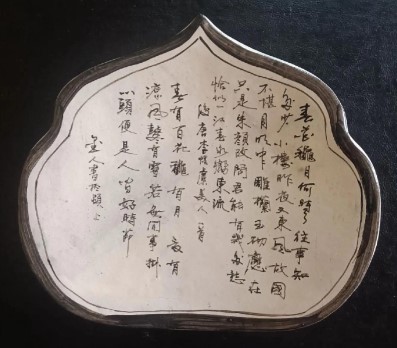 春花龝月何時了往事知
多少小樓昨夜又東風故國
不堪月明中雕欄玉砌應在
只是朱顏改問君能有幾多愁
恰似一江春水向東流
後唐李煜虞美人一首
春有百花龝有月夏有
涼風冬有雪若無閒事掛
心頭便是人間好時節
人書於上